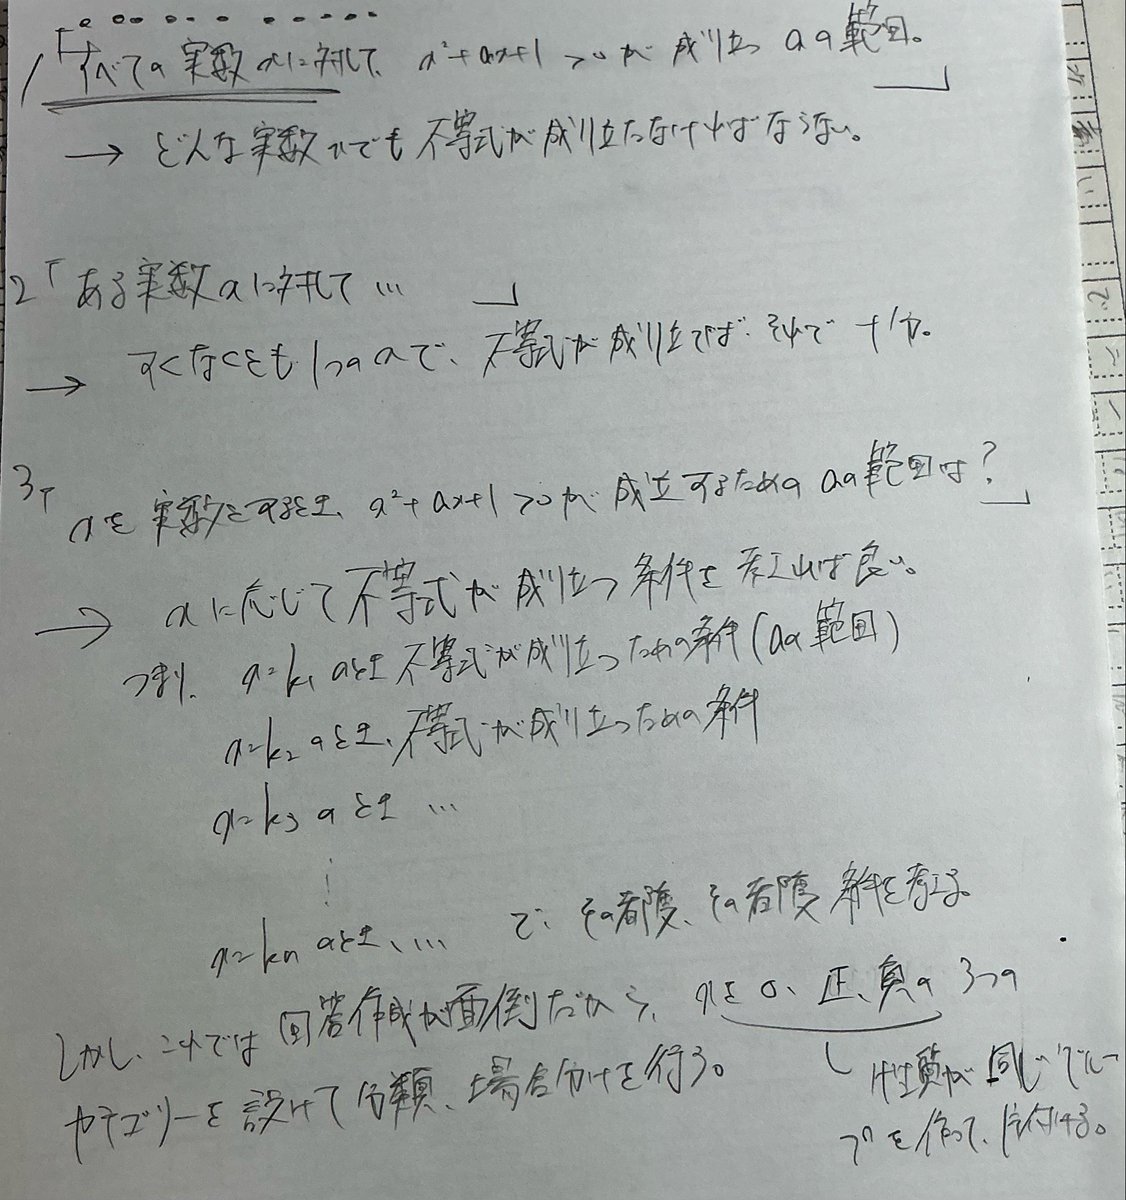 1「すべての実数xに対して、x²+ax+1>0が成り立つaの範囲。」
→ どんな実数xでも不等式が成り立たなければならない。
2「ある実数xに対して…」
→ すくなくとも1つのxで、不等式が成り立てば、それで十分。
3「xを実数とするとき、x²+ax+1>0が成立するためのaの範囲は?」
→ xに応じて不等式が成り立つ条件を考えれば良い。
つまり、x=k₁のとき不等式が成り立つための条件(aの範囲)
x=k₂のとき、不等式が成り立つための条件
x=k₃のとき…
⋮
x=knのとき、… で、その都度、その都度条件を考える。
しかし、これでは回答作成が面倒だから、xを0、正、負の3つの
カテゴリーを設けて分類、場合分けを行う。
性質が同じグルー
プを作って、片付ける。